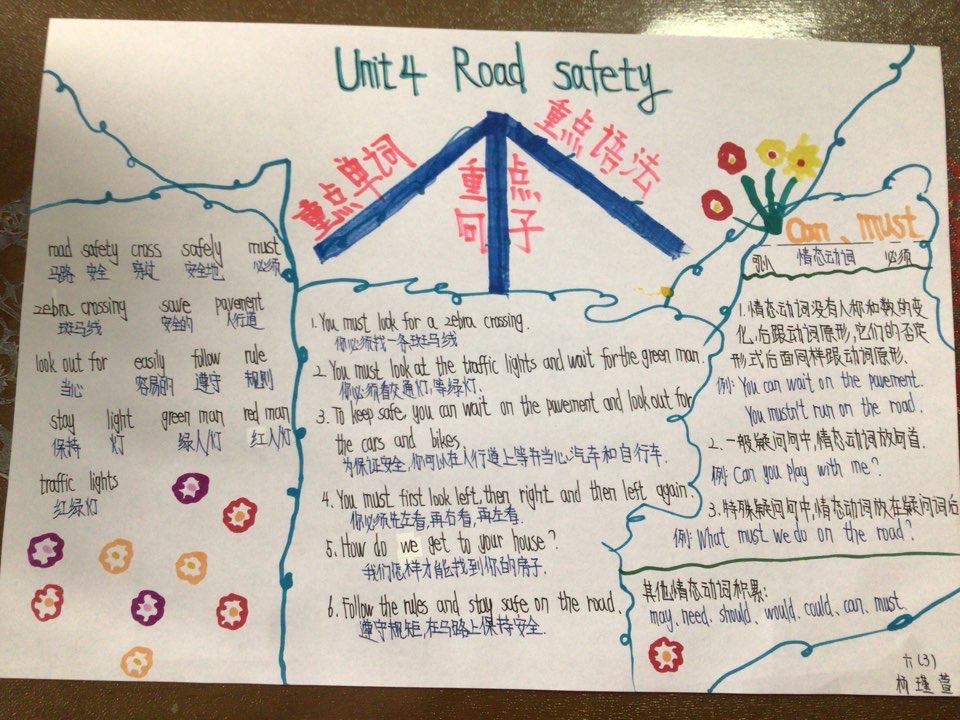 Unit 4 Road safety
重点单词
重点句子
重点语法
road safety cross safely must
马路 安全 穿过 安全地 必须
zebra crossing save pavement
斑马线 安全的 人行道
look out for easily follow rule
当心 容易的 遵守 规则
stay light green man red man
保持 灯 绿人灯 红人灯
traffic lights
红绿灯
1. You must look for a zebra crossing.
你必须找一条斑马线
2. You must look at the traffic lights and wait for the green man.
你必须看交通灯,等绿灯.
3. To keep safe, you can wait on the pavement and look out for
the cars and bikes.
为保证安全,你可以在人行道上等并当心汽车和自行车.
4. You must first look left, then right and then left again.
你必须先左看,再右看,再左看.
5. How do we get to your house?
我们怎样才能找到你的房子.
6. Follow the rules and stay safe on the road.
遵守规矩,在马路上保持安全.
can、must
情态动词 必须
1.情态动词没有人称和数的变
化,后跟动词原形,它们的否定
形式后面同样跟动词原形.
例: You can wait on the pavement.
You mustn't run on the road.
2.一般疑问句中,情态动词放句首.
例: Can you play with me?
3.特殊疑问句中,情态动词放在疑问词后
例: What must we do on the road?
其他情态动词积累:
may. need. should. would. could. can. must.
六(3)
杨瑾萱